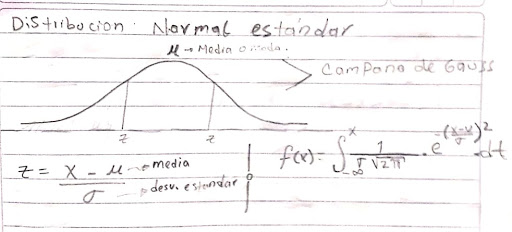 Distribucion Normal estándar
μ → Media o moda.
Campana de Gauss
z z
z = x - μ → media
σ → desv. estandar
f(x) = ∫_{-∞}^{x} 1/(σ√2π) · e^{-((x-μ)/σ)^2} dt